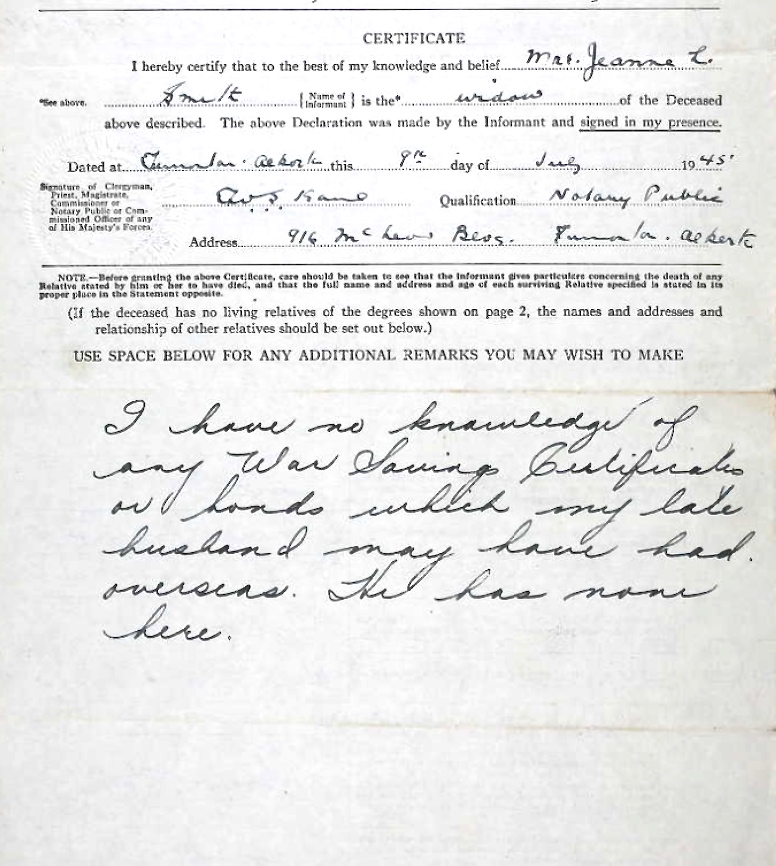 CERTIFICATE
I hereby certify that to the best of my knowledge and belief Mrs. Jeanne L.
*See above. {Name of Informant} is the* widow of the Deceased
above described. The above Declaration was made by the Informant and signed in my presence.
Dated at this 9th day of July 1945
Signature of Clergyman,
Priest, Magistrate,
Commissioner or
Notary Public or Com-
missioned Officer of any
of His Majesty's Forces.
Kane Qualification Notary Public
Address 916
NOTE.—Before granting the above Certificate, care should be taken to see that the Informant gives particulars concerning the death of any
Relative stated by him or her to have died, and that the full name and address and age of each surviving Relative specified is stated in its
proper place in the Statement opposite.
(If the deceased has no living relatives of the degrees shown on page 2, the names and addresses and
relationship of other relatives should be set out below.)
USE SPACE BELOW FOR ANY ADDITIONAL REMARKS YOU MAY WISH TO MAKE
I have no knowledge of
any War Savings Certificates
or bonds which my late
husband may have had.
overseas. He has none
here.